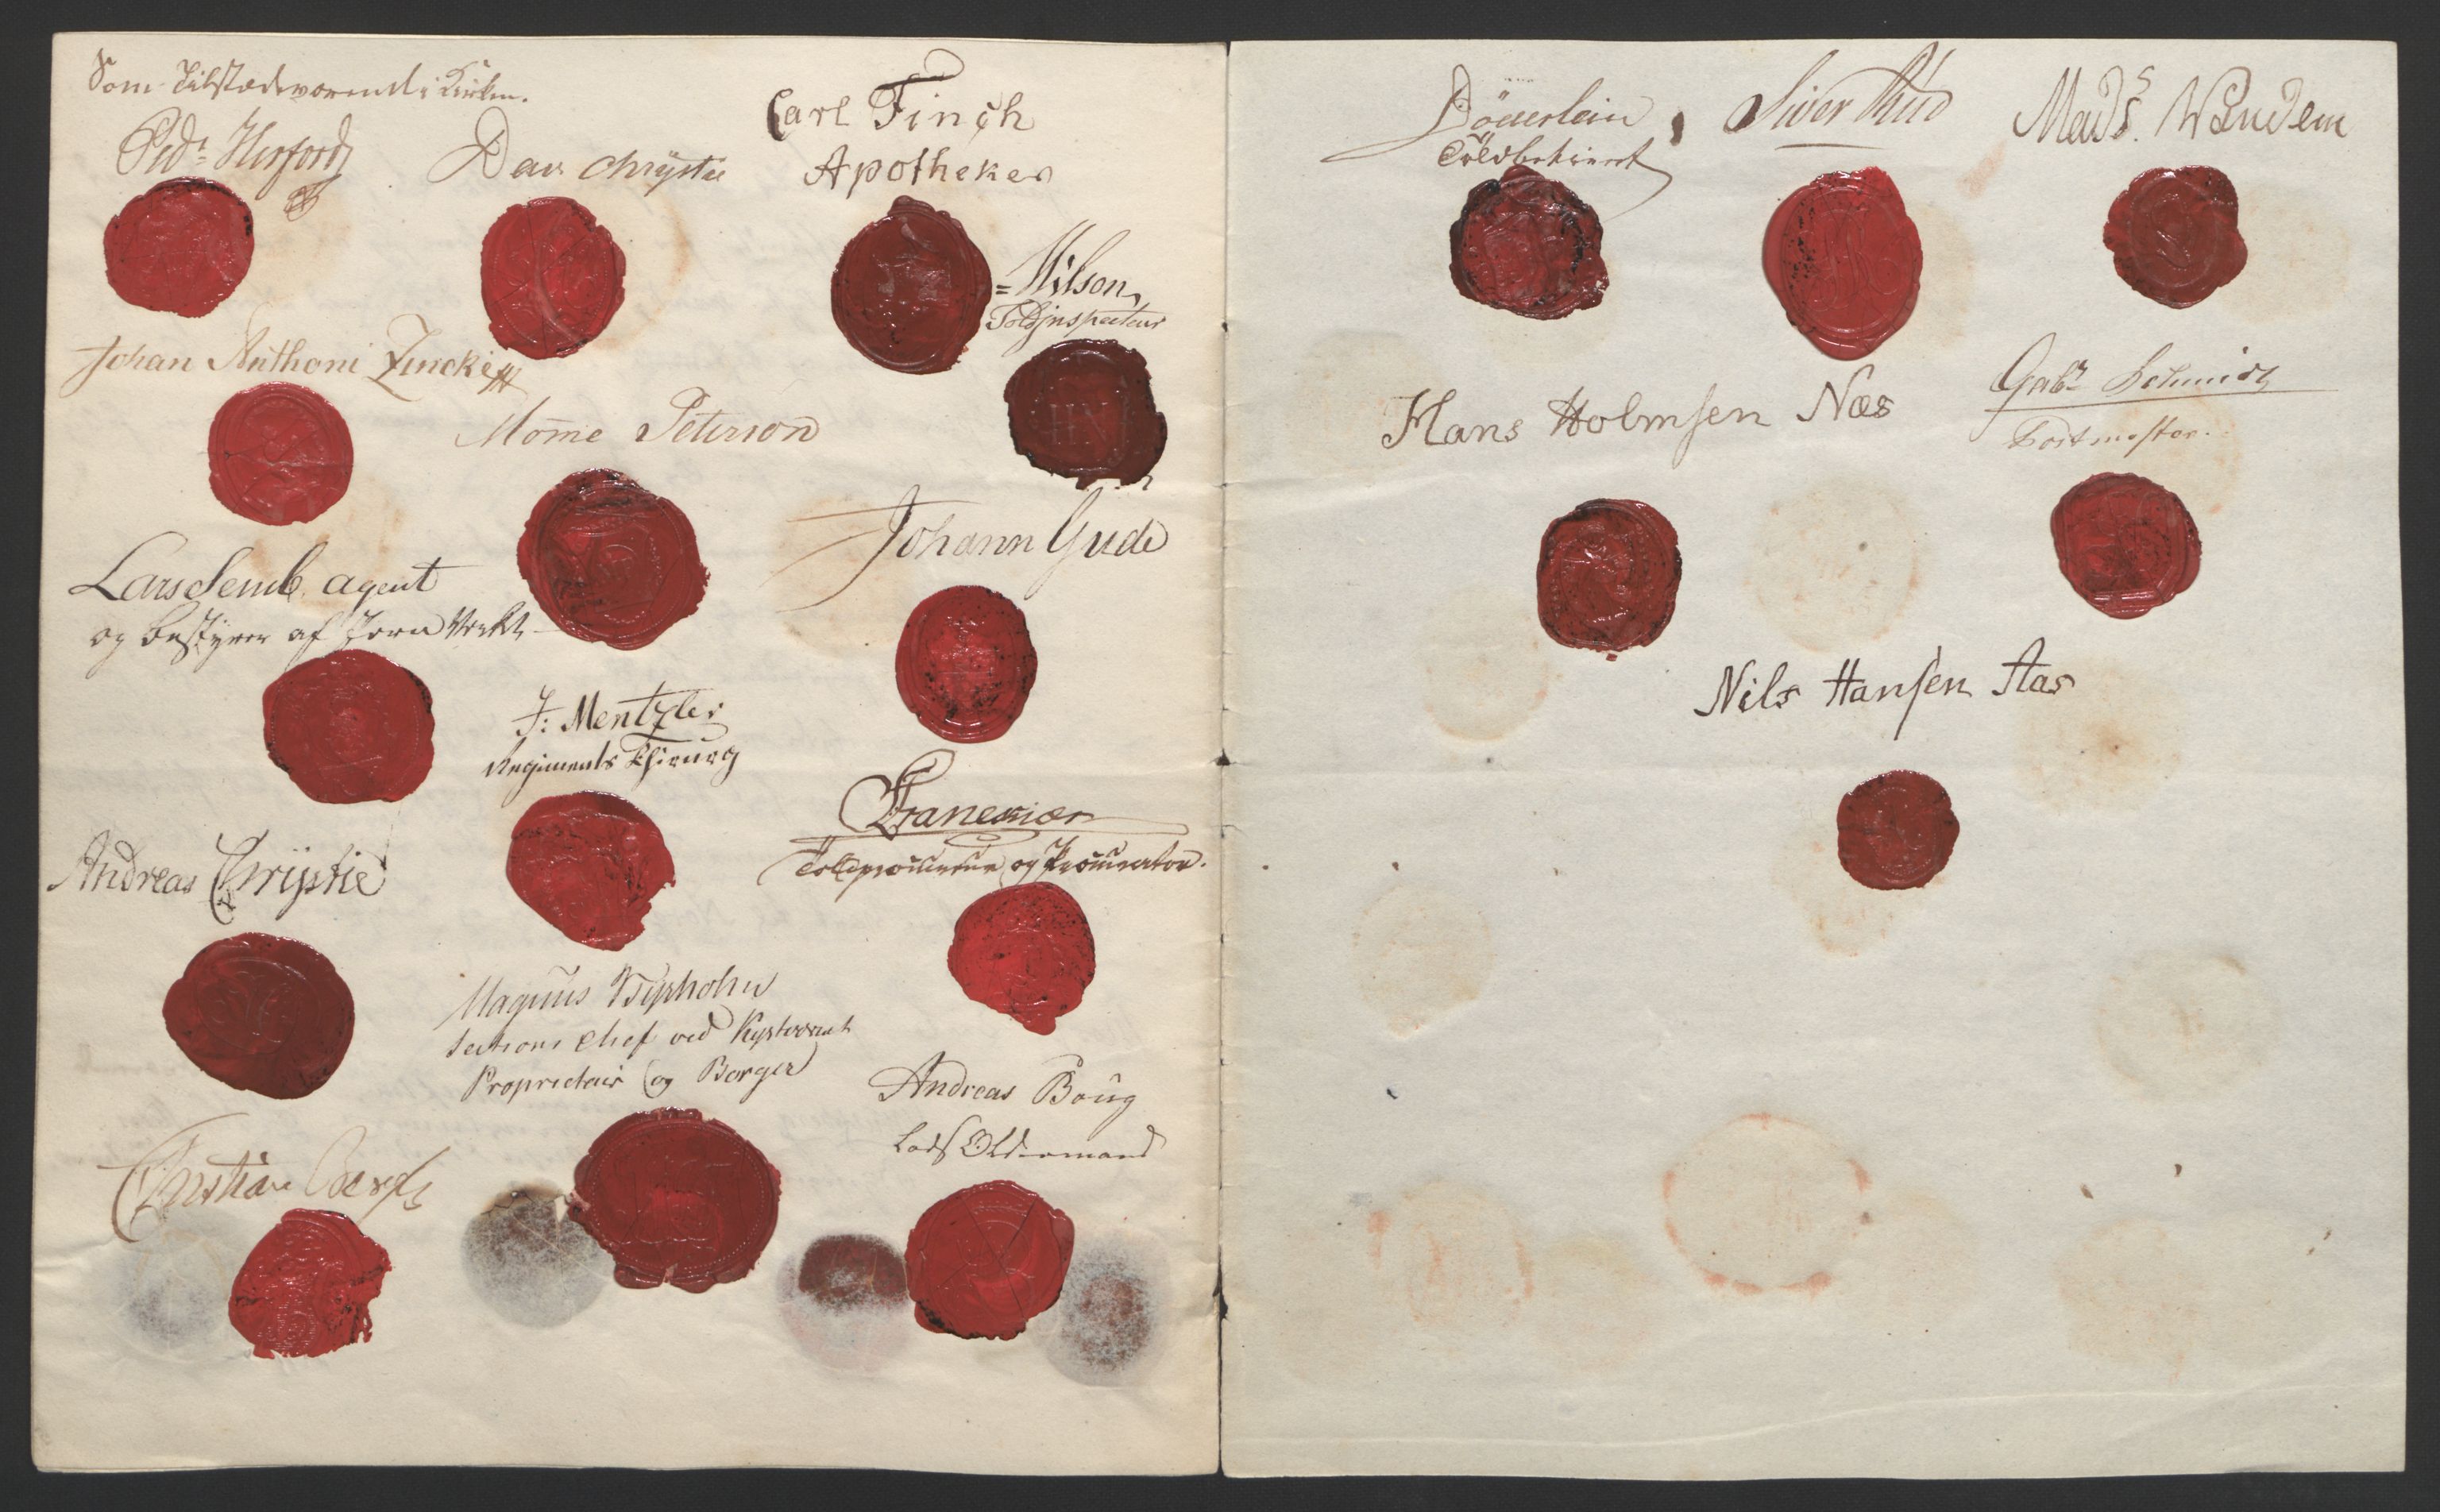 Som Tilstædeværende i Kirken.
Pedr. Herfordt
Dav. Chrystie
Carl Finch
Apotheker
Nilson,
Toldjnspecteur
Johan Anthoni Zincke
Momme Peterson
HN
Johann Gude
Lars Semb agent
og Bestyrer af Jern Verket
J: Mentzler
Regiments Chirurg
Tranekiær
Toldprocureur og Procurator.
Andreas Chrÿstie
Magnus Wÿnholm
Sections Chef ved Kystværnet
Proprietair og Borger
Andreas Boüg
Lods Olldermand
Christian
Döderlein
Toldbetient
Siver
Mads. Wandem
Hans Holmsen Næs
Gabr. Schmidt
Postmester.
Nils Hansen Aas